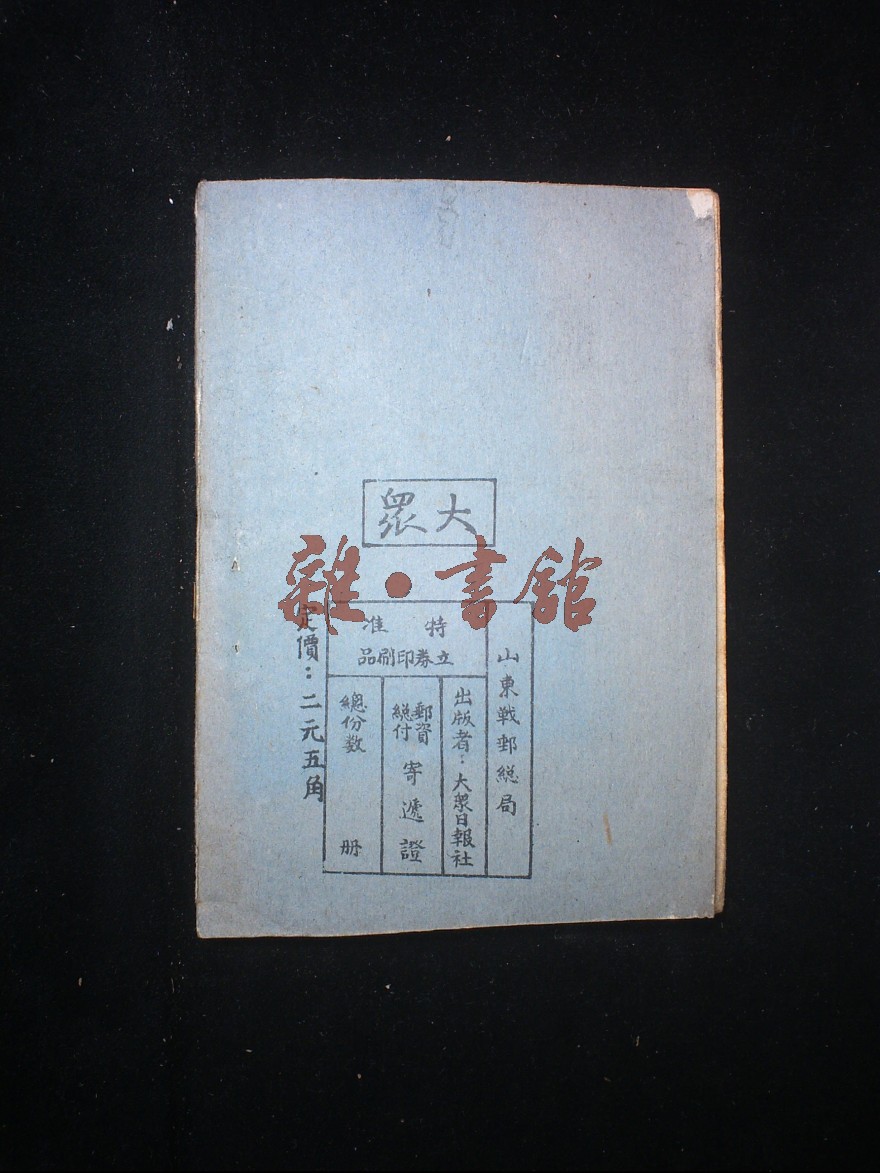 大眾
雜·書館
山東戰郵総局
特准
立券印刷品
出版者：大眾日報社
郵資総付寄遞證
總份数 册
定價：二元五角